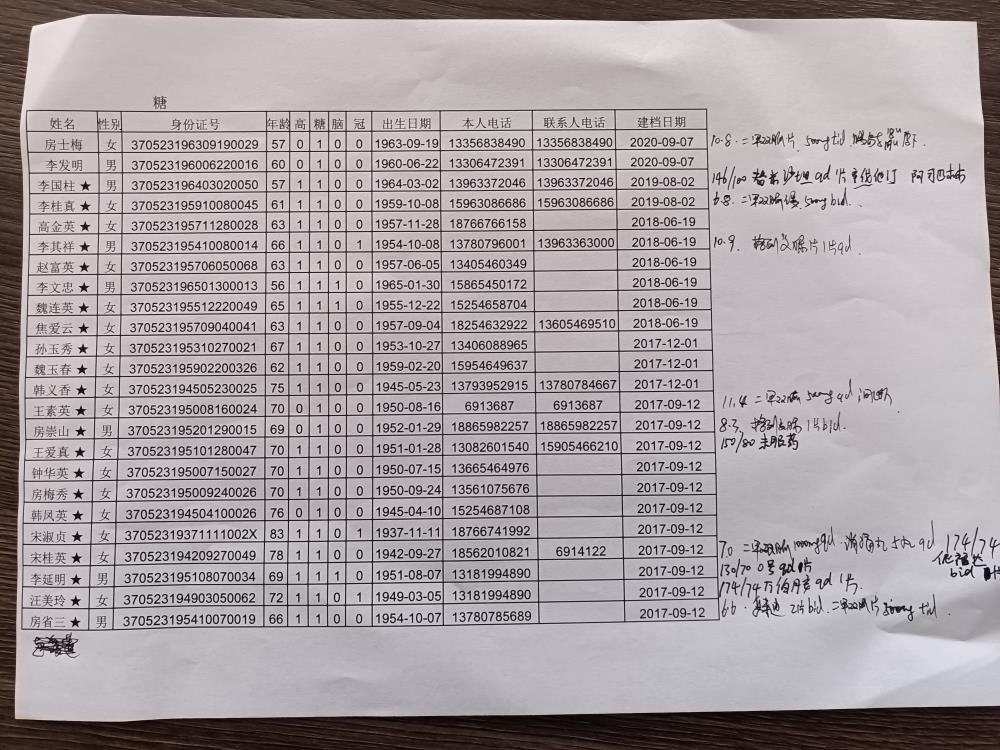 糖
姓名 性别 身份证号 年龄 高 糖 脑 冠 出生日期 本人电话 联系人电话 建档日期
房士梅 女 370523196309190029 57 0 1 0 0 1963-09-19 13356838490 13356838490 2020-09-07 10.8. 二甲双胍片. 500mg tid
李发明 男 370523196006220016 60 0 1 0 0 1960-06-22 13306472391 13306472391 2020-09-07
李国柱 ★ 男 370523196403020050 57 1 1 0 0 1964-03-02 13963372046 13963372046 2019-08-02 146/100 替米沙坦 qd 1片
李桂真 ★ 女 370523195910080045 61 1 1 0 0 1959-10-08 15963086686 15963086686 2019-08-02 二甲双胍 bid.
高金英 ★ 女 370523195711280028 63 1 1 0 0 1957-11-28 18766766158 2018-06-19
李其祥 ★ 男 370523195410080014 66 1 1 0 1 1954-10-08 13780796001 13963363000 2018-06-19 10.9. 片 1片 qd.
赵富英 ★ 女 370523195706050068 63 1 1 0 0 1957-06-05 13405460349 2018-06-19
李文忠 ★ 男 370523196501300013 56 1 1 1 0 1965-01-30 15865450172 2018-06-19
魏连英 ★ 女 370523195512220049 65 1 1 1 0 1955-12-22 15254658704 2018-06-19
焦爱云 ★ 女 370523195709040041 63 1 1 0 0 1957-09-04 18254632922 13605469510 2018-06-19
孙玉秀 ★ 女 370523195310270021 67 1 1 0 0 1953-10-27 13406088965 2017-12-01
魏玉春 ★ 女 370523195902200326 62 1 1 0 0 1959-02-20 15954649637 2017-12-01
韩义香 ★ 女 370523194505230025 75 1 1 0 0 1945-05-23 13793952915 13780784667 2017-12-01
王素英 ★ 女 370523195008160024 70 0 1 0 0 1950-08-16 6913687 6913687 2017-09-12 11.4 二甲双胍 500mg qd 间断
房崇山 ★ 男 370523195201290015 69 0 1 0 0 1952-01-29 18865982257 18865982257 2017-09-12 8.3. 1片 bid.
王爱真 ★ 女 370523195101280047 70 1 1 0 0 1951-01-28 13082601540 15905466210 2017-09-12 150/80 未服药
钟华英 ★ 女 370523195007150027 70 1 1 0 0 1950-07-15 13665464976 2017-09-12
房梅秀 ★ 女 370523195009240026 70 1 1 0 0 1950-09-24 13561075676 2017-09-12
韩凤英 ★ 女 370523194504100026 76 0 1 0 0 1945-04-10 15254687108 2017-09-12
宋淑贞 ★ 女 37052319371111002X 83 1 1 0 1 1937-11-11 18766741992 2017-09-12
宋桂英 ★ 女 370523194209270049 78 1 1 0 0 1942-09-27 18562010821 6914122 2017-09-12 7.0 二甲双胍 1000mg qd. 消渴丸 5丸 qd 174/74
李延明 ★ 男 370523195108070034 69 1 1 1 0 1951-08-07 13181994890 2017-09-12 130/70 0号 qd 1片 bid
汪美玲 ★ 女 370523194903050062 72 1 1 0 1 1949-03-05 13181994890 2017-09-12 174/74 qd 1片.
房省三 ★ 男 370523195410070019 66 1 1 0 0 1954-10-07 13780785689 2017-09-12 6.6. 2片 bid. 二甲双胍片 500mg tid